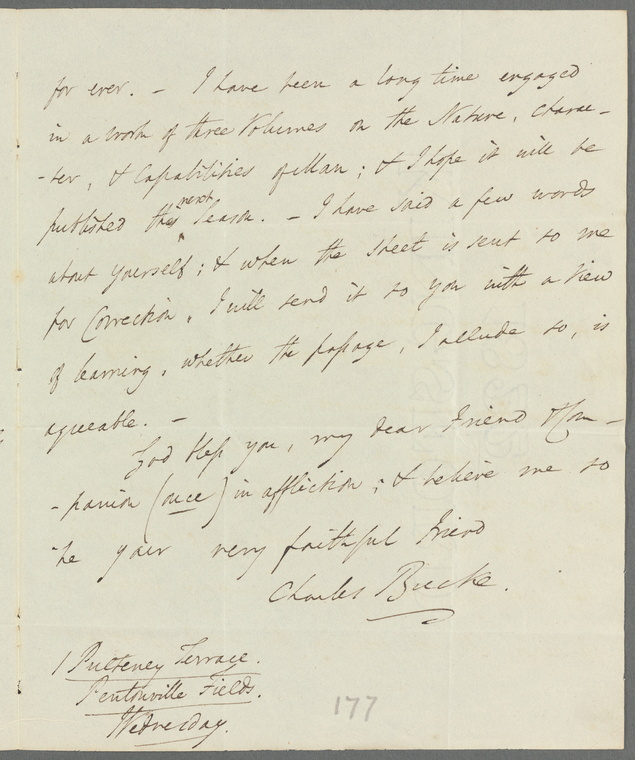 for ever. – I have been a long time engaged
in a work of three Volumes on the Nature, Charac-
-ter, & Capabilities of Man; & I hope it will be
published the next Season. – I have said a few words
about yourself; & when the sheet is sent to me
for Correction, I will send it to you with a view
of learning, whether the passage, I allude to, is
agreeable. –
God bless you, my dear Friend & Com-
-panion (once) in affliction; & believe me to
be your very faithful Friend
Charles Bucke.
1 Pulteney Terrace.
Pentonville Fields.
Wednesday.
177